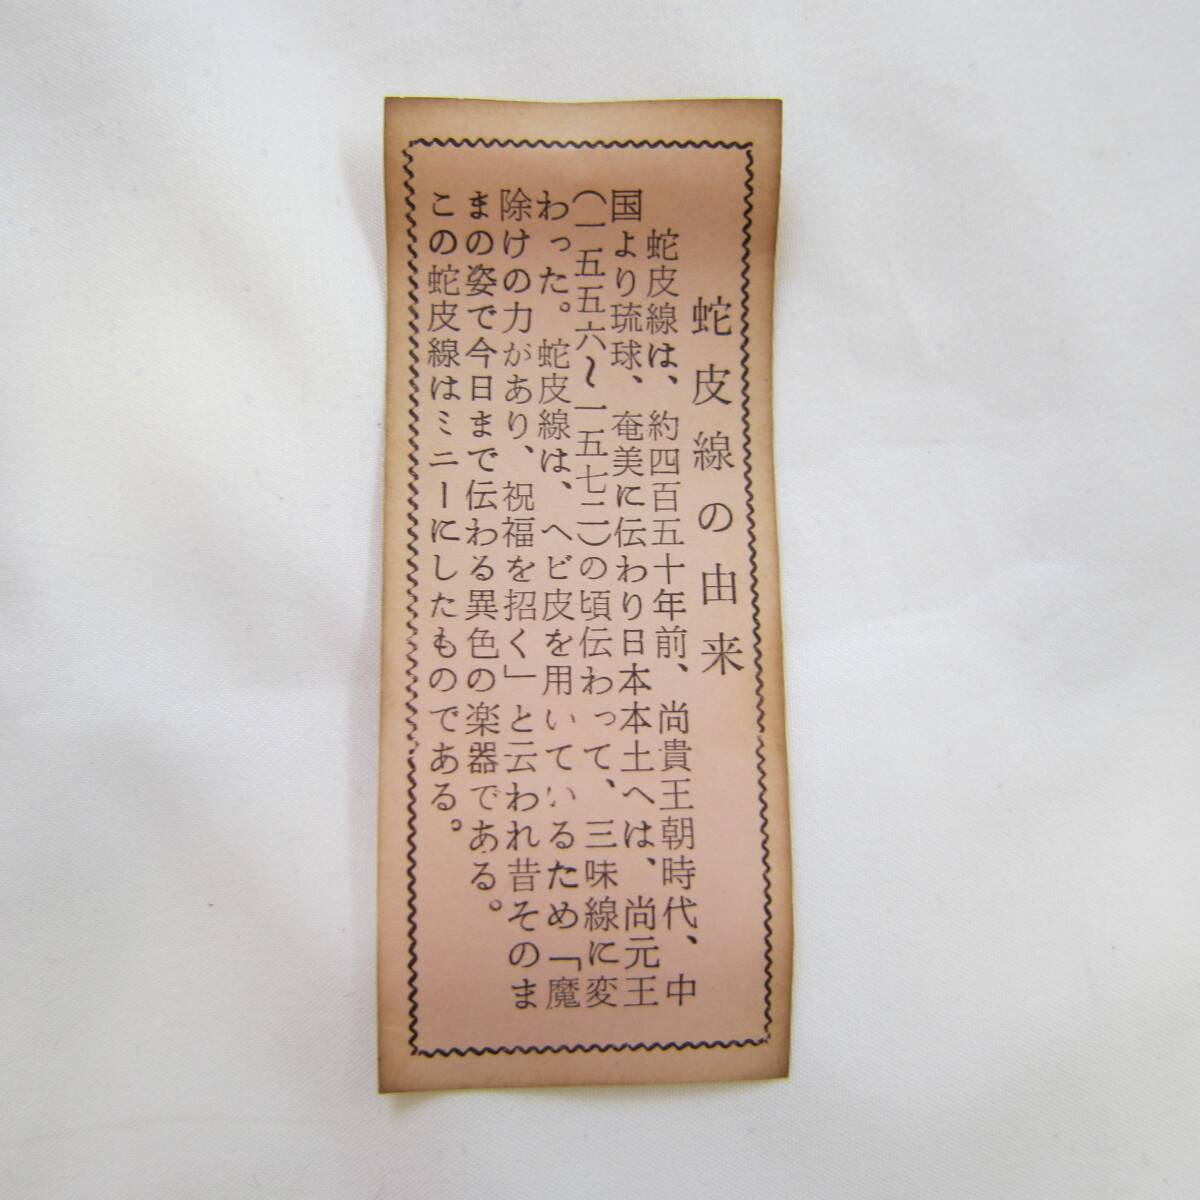 蛇皮線の由来
蛇皮線は、約四百五十年前、尚貴王朝時代、中
国より琉球、奄美に伝わり日本本土へは、尚元王
(一五五六〜一五七二)の頃伝わって、三味線に変
わった。蛇皮線は、ヘビ皮を用いているため「魔
除けの力があり、祝福を招く」と云われ昔そのま
まの姿で今日まで伝わる異色の楽器である。
この蛇皮線はミニーにしたものである。